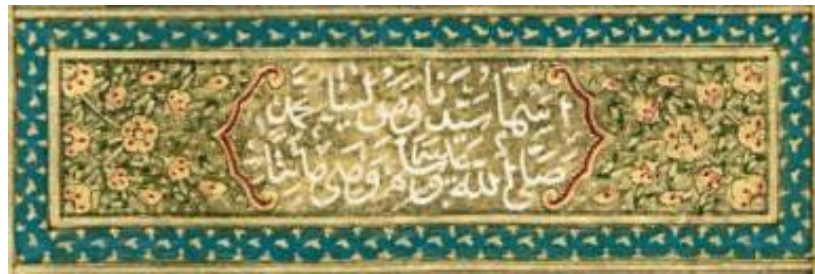 اسمآء سيدنا ومولينا محمد
صلى الله عليه وسلم وهى مائتا